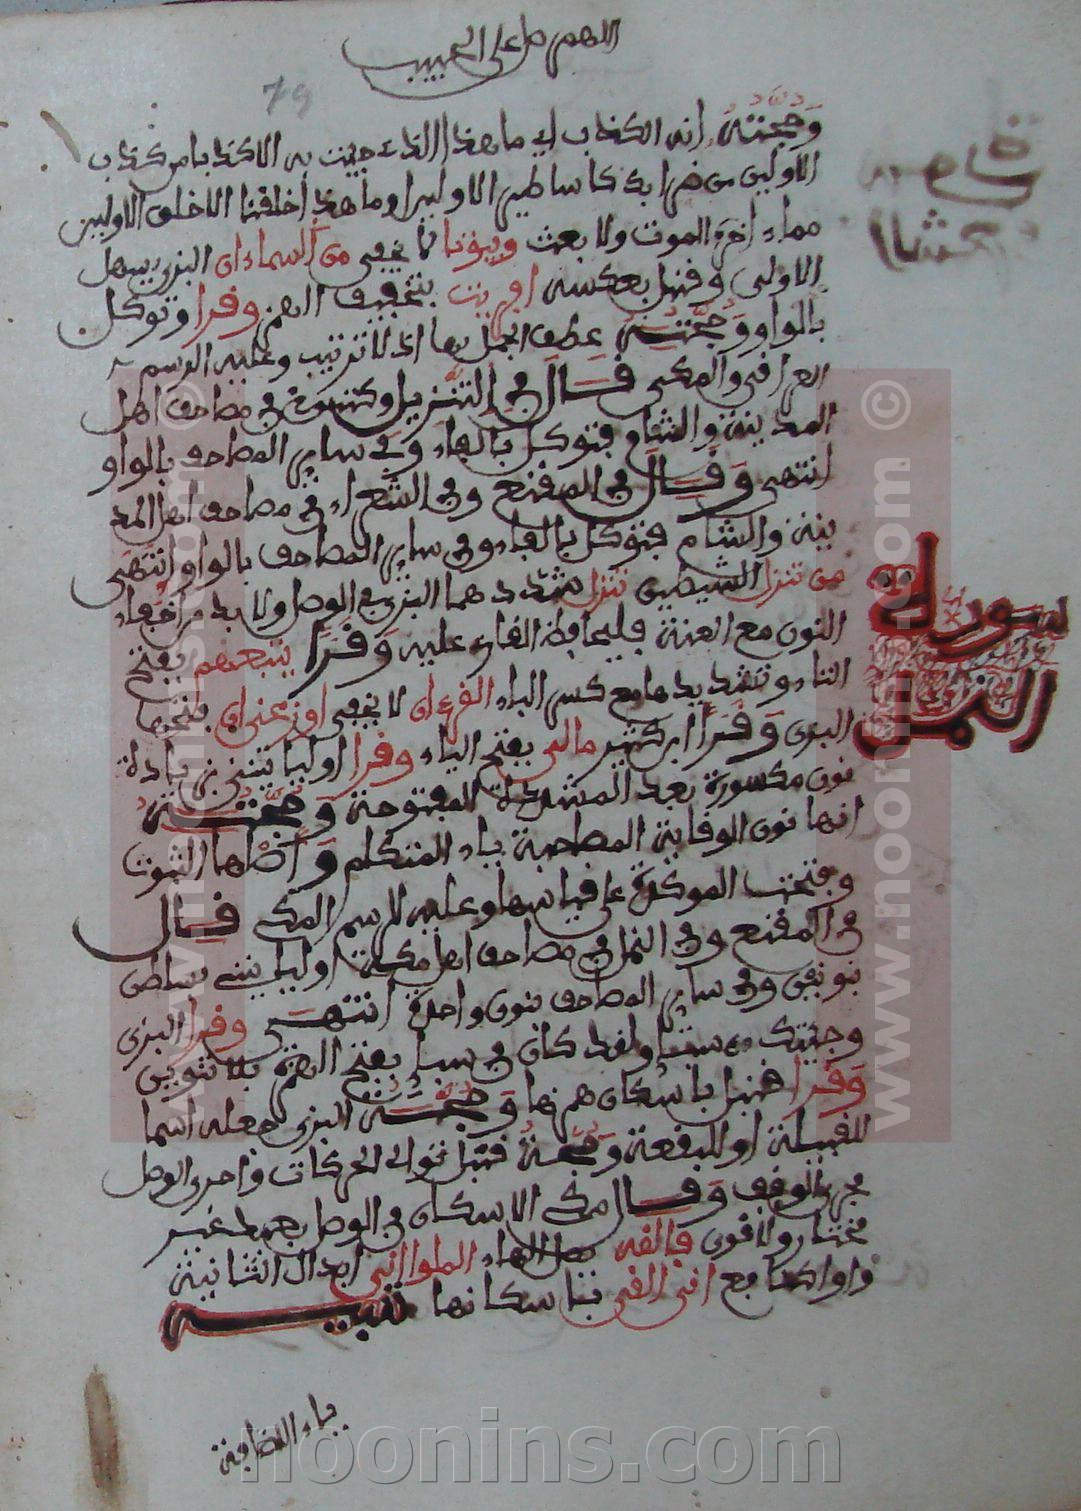 اللهم صل على الحبيب
79
وحجته انه الكذاب اي ما هذا الذي جيت به الا كذبا من كذب
الاولين من قرا بك كاساطير الاولين او ما هذا خلقنا الا خلق الاولين
حياة اخره الموت ولا بعث وبيوتا لا يخفى من السماء ان البزي يسهل
الاولى وقنبل بعكسه افريت بتخفيف الهمز وقرا وتوكل
بالواو وحجته عطف الجمل بها اذ لا ترتيب وعليه الرسم
العراقي والمكي قال في التنزيل وكتبوا في مصاحف اهل
المدينة والشام فتوكل بالفاء وفي ساير المصاحف بالواو
انتهى وقال في المقنع وفي الشعراء في مصاحف اهل المد
ينة والشام فتوكل بالفاء وفي ساير المصاحف بالواو انتهى
من تنزل الشيطين تنزل شدد هما البزي في الوصل ولا بد من اخفاء
النون مع الغنة فليحافظ القارئ عليه وقرا يتبعهم بفتح
التاء وتشديدها مع كسر الباء القرءان لا يخفى اوزعني ان بفتحها
البزي وقرا ابن كثير مالي بفتح الياء وقرا اوليا تينني بزيادة
نون مكسورة بعد المشددة المفتوحة وحجته
انها نون الوقاية المصاحبة ياء المتكلم واصلها الثبوت
وفتحت الموكدة على قياسها وعليه الرسم المكي قال
في المقنع وفي النمل في مصاحف اهل مكة اوليا تينني
بنونين وفي ساير المصاحف بنون واحدة انتهى وقرا البزي
وجيتك من سبا ولقد كان في سبا بفتح الهمزة بلا تنوين
وقرا قنبل باسكان همزها وحجة البزي جعله اسما
للقبيلة او للبقعة وحجة قنبل توالي الحركات واجرى الوصل
مجرى الوقف وقال مكي الاسكان في الوصل بعيد غير
مختار ولا قوي فالقه بصل الهاء الملوا اني ابدال الثانية
واوا كنافع اتين الله باسكانها تنبيه
ياء الاضافة
سورة
النمل
www.noonins.com ©
www.noonins.com ©
noonins.com